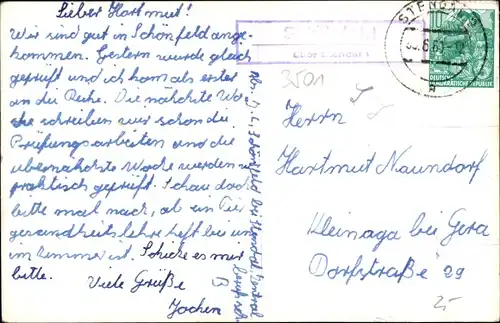 Lieber Hartmut!
Wir sind gut in Schönfeld ange-
kommen. Gestern wurde gleich
geprüft und ich kam als erster
an die Reihe. Die nächste Wo-
che schreiben wir schon die
Prüfungsarbeiten und die
übernächste Woche werden wir
praktisch geprüft. Schau doch
bitte mal nach, ob ein Tier
gesundheitslehre Heft bei uns
im Zimmer ist. Schicke es mir
bitte. Viele Grüße
Jochen
STENDAL
10
DEUTSCHE
DEMOKRATISCHE REPUBLIK
über Stendal
3501
Schönfeld Bei Stendal Zentral
berufssch
B
Herrn
Hartmut Naundorf
Kleinaga bei Gera
Dorfstraße 29
25